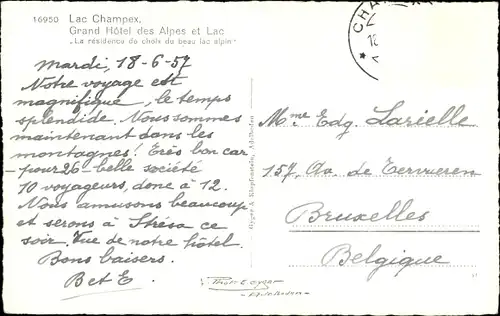 16950 Lac Champex,
Grand Hôtel des Alpes et Lac
„La résidence de choix du beau lac alpin"
mardi, 18-6-57
Notre voyage est
magnifique, le temps
splendide. Nous sommes
maintenant dans les
montagnes! Très bon car
-pour 26- belle société
10 voyageurs, donc à 12.
Nous amusons beaucoup
et serons à Strésa ce
soir. Vue de notre hôtel.
Bons baisers.
B et E.
CHA
18
Mme Edg. Larielle
157, Av. de Tervueren
Bruxelles
Belgique
Gyger & Klopfenstein, Adelboden
Phot. Gyger
Adelboden